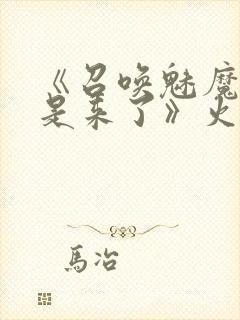 《召唤魅魔
是来了》火
馬冶